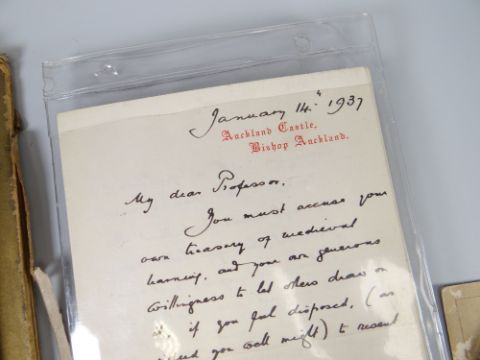 January 14.th 1937
Auckland Castle,
Bishop Auckland.
My dear Professor,
You must accuse your
own treasury of medieval
learning, and your own generous
willingness to let others draw on
if you feel disposed, (as
you well might) to resent